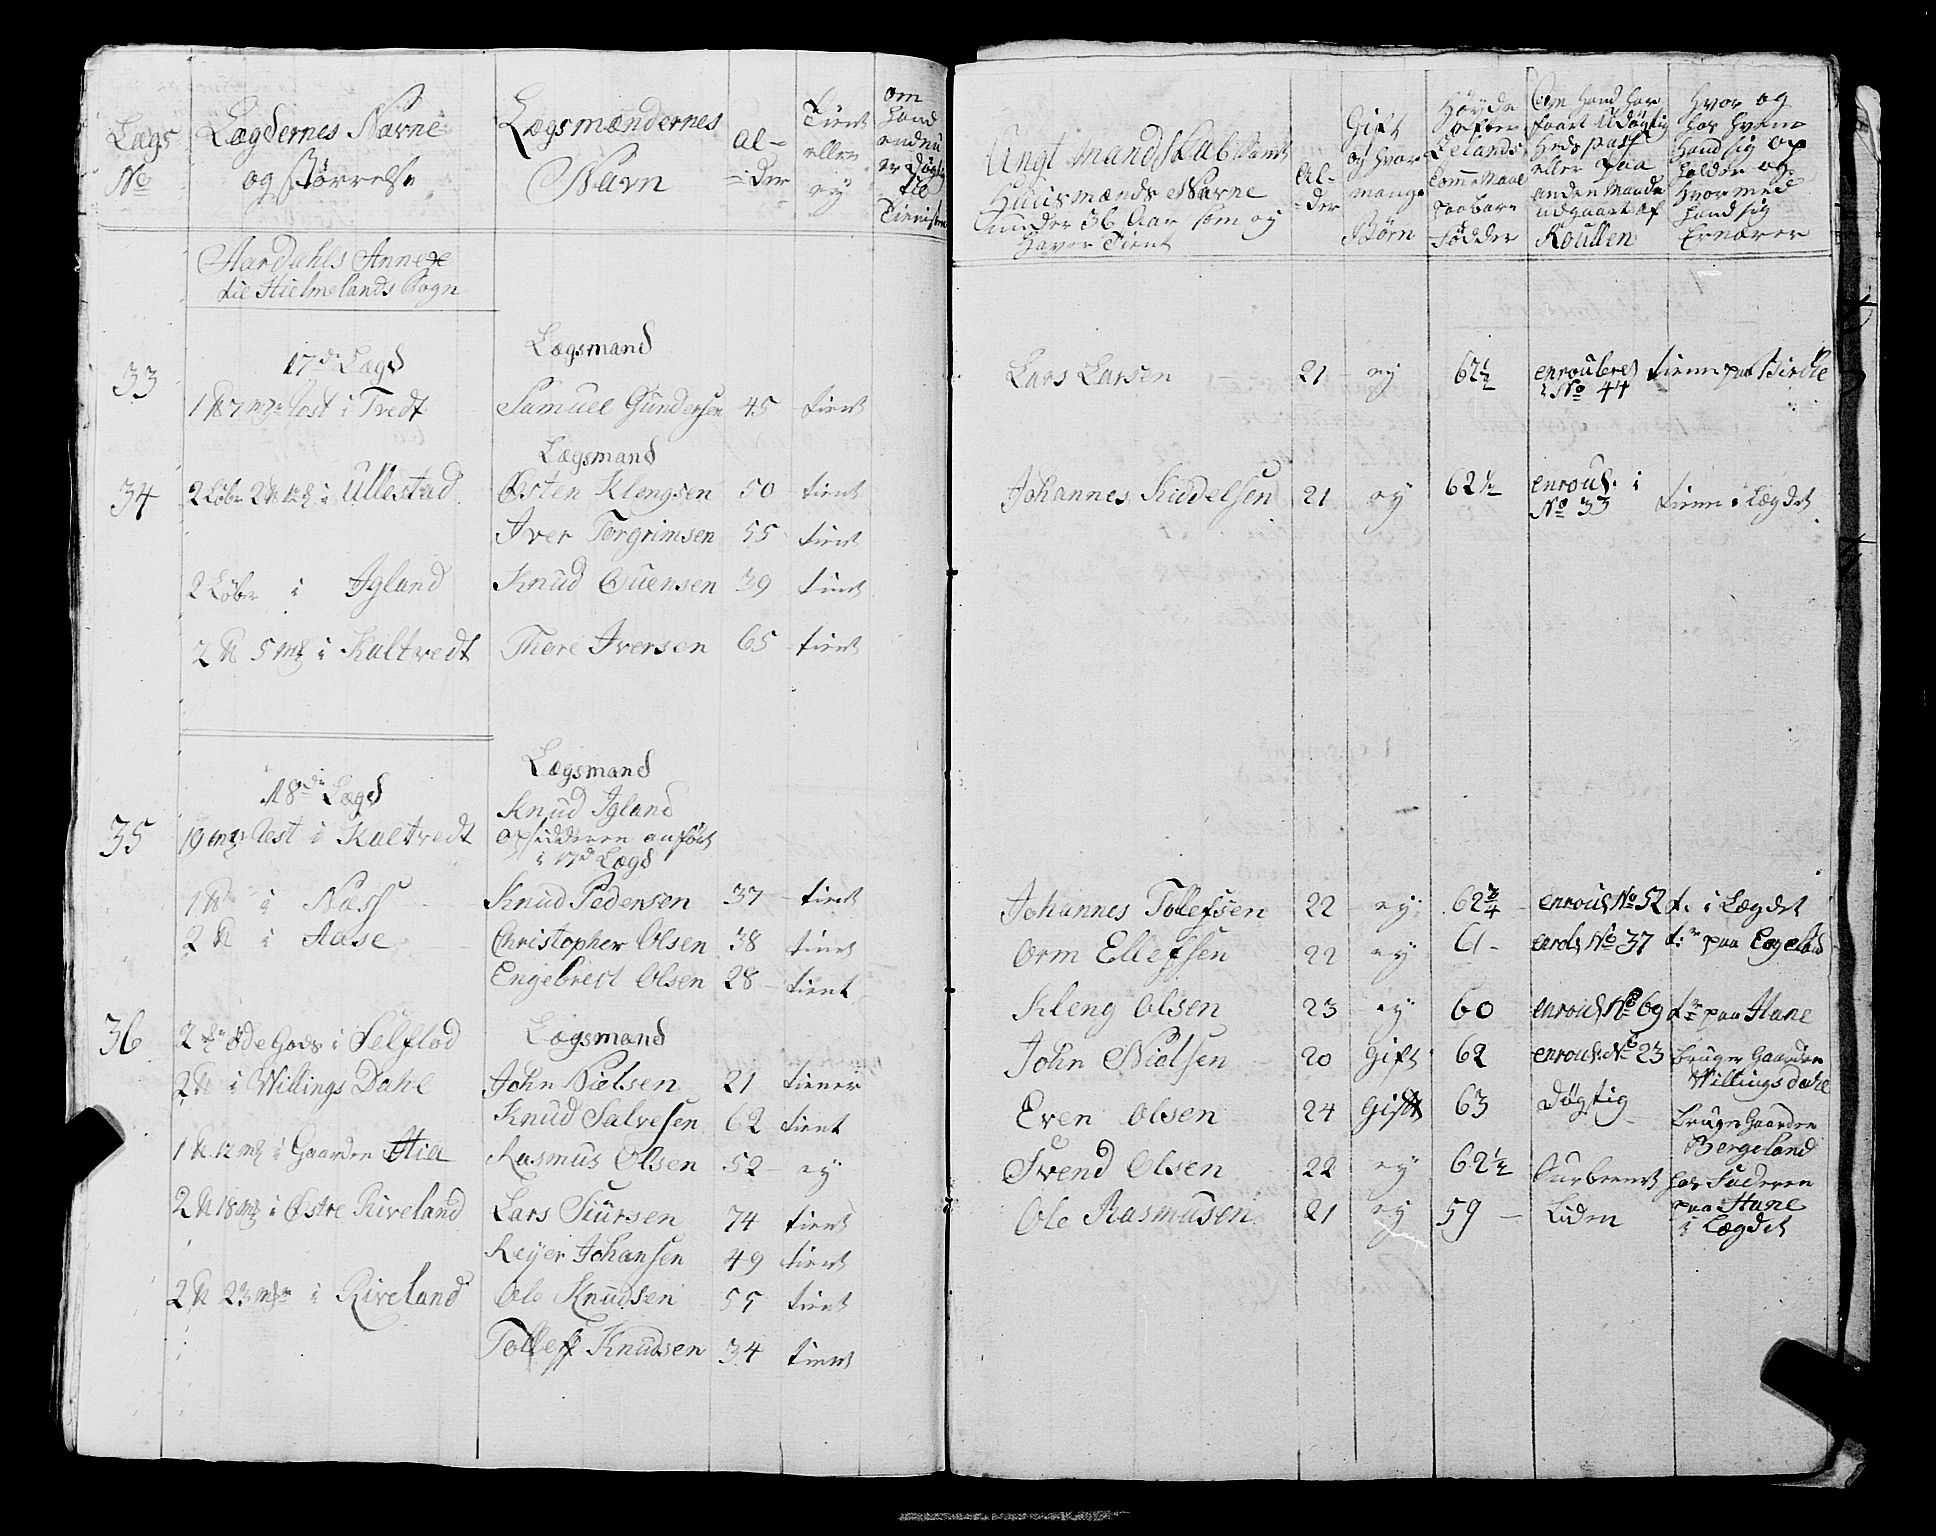 Lægs
No
Lægdernes Navne
og størrelse
Lægsmændernes
Navn
al-
-der
Tient
eller
ey
om
hand
endnu
er døgtig
til
Tienisten
Aardahls Annexe
til Hielmelands Sogn
33
17de Lægd
Lægsmand
Samuel Gundersen 45 tient
34
Lægsmand
i Ullestad Østen Klengsen 50 tient
Iver Torgrimsen 55 tient
2 Løber i Igland Knud Guensen 39 tient
i Kaltvedt Thore Iversen 65 tient
18de Lægd
Lægsmand
Knud Igland
35
i Kaltvedt opsidderen anført
i 17de Lægd
i Næss Knud Pedersen 37 tient
i Aase Christopher Olsen 38 tient
Engebrect Olsen 28 tient
36
øde Gods i Selflod Lægsmand
i Willings Dahl John Nielsen 21 tiener
Knud Salvesen 62 tient
i Gaarden Hia Rasmus Olsen 52 ey
i Østre Riveland Lars Siursen 74 tient
Reyer Johansen 49 tient
i Riveland Ole Knudsen 55 tient
Tolleff Knudsen 34 tient
Ungt mandskab samt
Huusmænds Navne
under 36 Aar som ey
haver Tient
al-
-der
Gift
og hvor
mange
Børn
Høyde
efter
Selands
Tomme Maal
paa bare
Fødder
Om hand har
faaet Udøgtig
heds pass
eller paa
anden maade
udgaaet af
Roullen
Hvor og
hos hvem
hand sig op
holder og
hvormed
hand sig
Ernærer
Lars Larsen 21 ey 62½ enroulered
i No 44 tiener paa
Johannes Kiddelsen 21 ey 62½ enroul. i
No 33 tiener i Lægdet
Johannes Tollefsen 22 ey 62¾ enroul No 52 t. i Lægdet
Orm Ellefsen 22 ey 61 No 37 paa
Kleng Olsen 23 ey 60 enroul No 69 paa Hane
John Nielsen 20 Gift 62 enroul. No 23 bruger Gaarden
Willingsdahl
Even Olsen 24 Gift 63 Døgtig bruger Gaarden
Bergeland
Svend Olsen 22 ey 62½ hos Faderen
paa Hane
Ole Rasmusen 21 ey 59 Liden i Lægdet